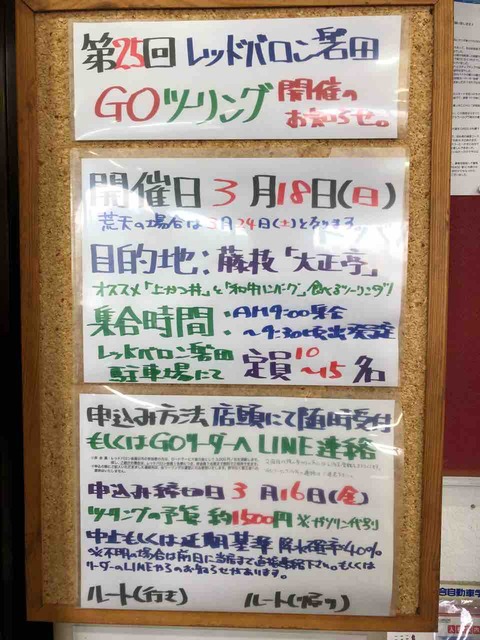 第25回 レッドバロン磐田
GOツーリング 開催の
お知らせ。
開催日 3月18日(日)
荒天の場合は3月24日(土)となります
目的地:藤枝「大正亭」
オススメ「上かつ丼」と「和牛ハンバーグ」食べるツーリング!
集合時間:AM9:00集合
〜9:30頃出発予定
レッドバロン磐田
駐車場にて 定員10〜15名
申込み方法 店頭にて随時受付
もしくはGOリーダーへLINE連絡
申込み締切日 3月16日(金)
ツーリングの予算 約1500円 ※ガソリン代別り
中止もしくは延期基準 降水確率40%
※不明の場合は前日に当店まで直接連絡下さい。もしくは
リーダーのLINEからのお知らせがあります。
ルート(行き) ルート(帰り)